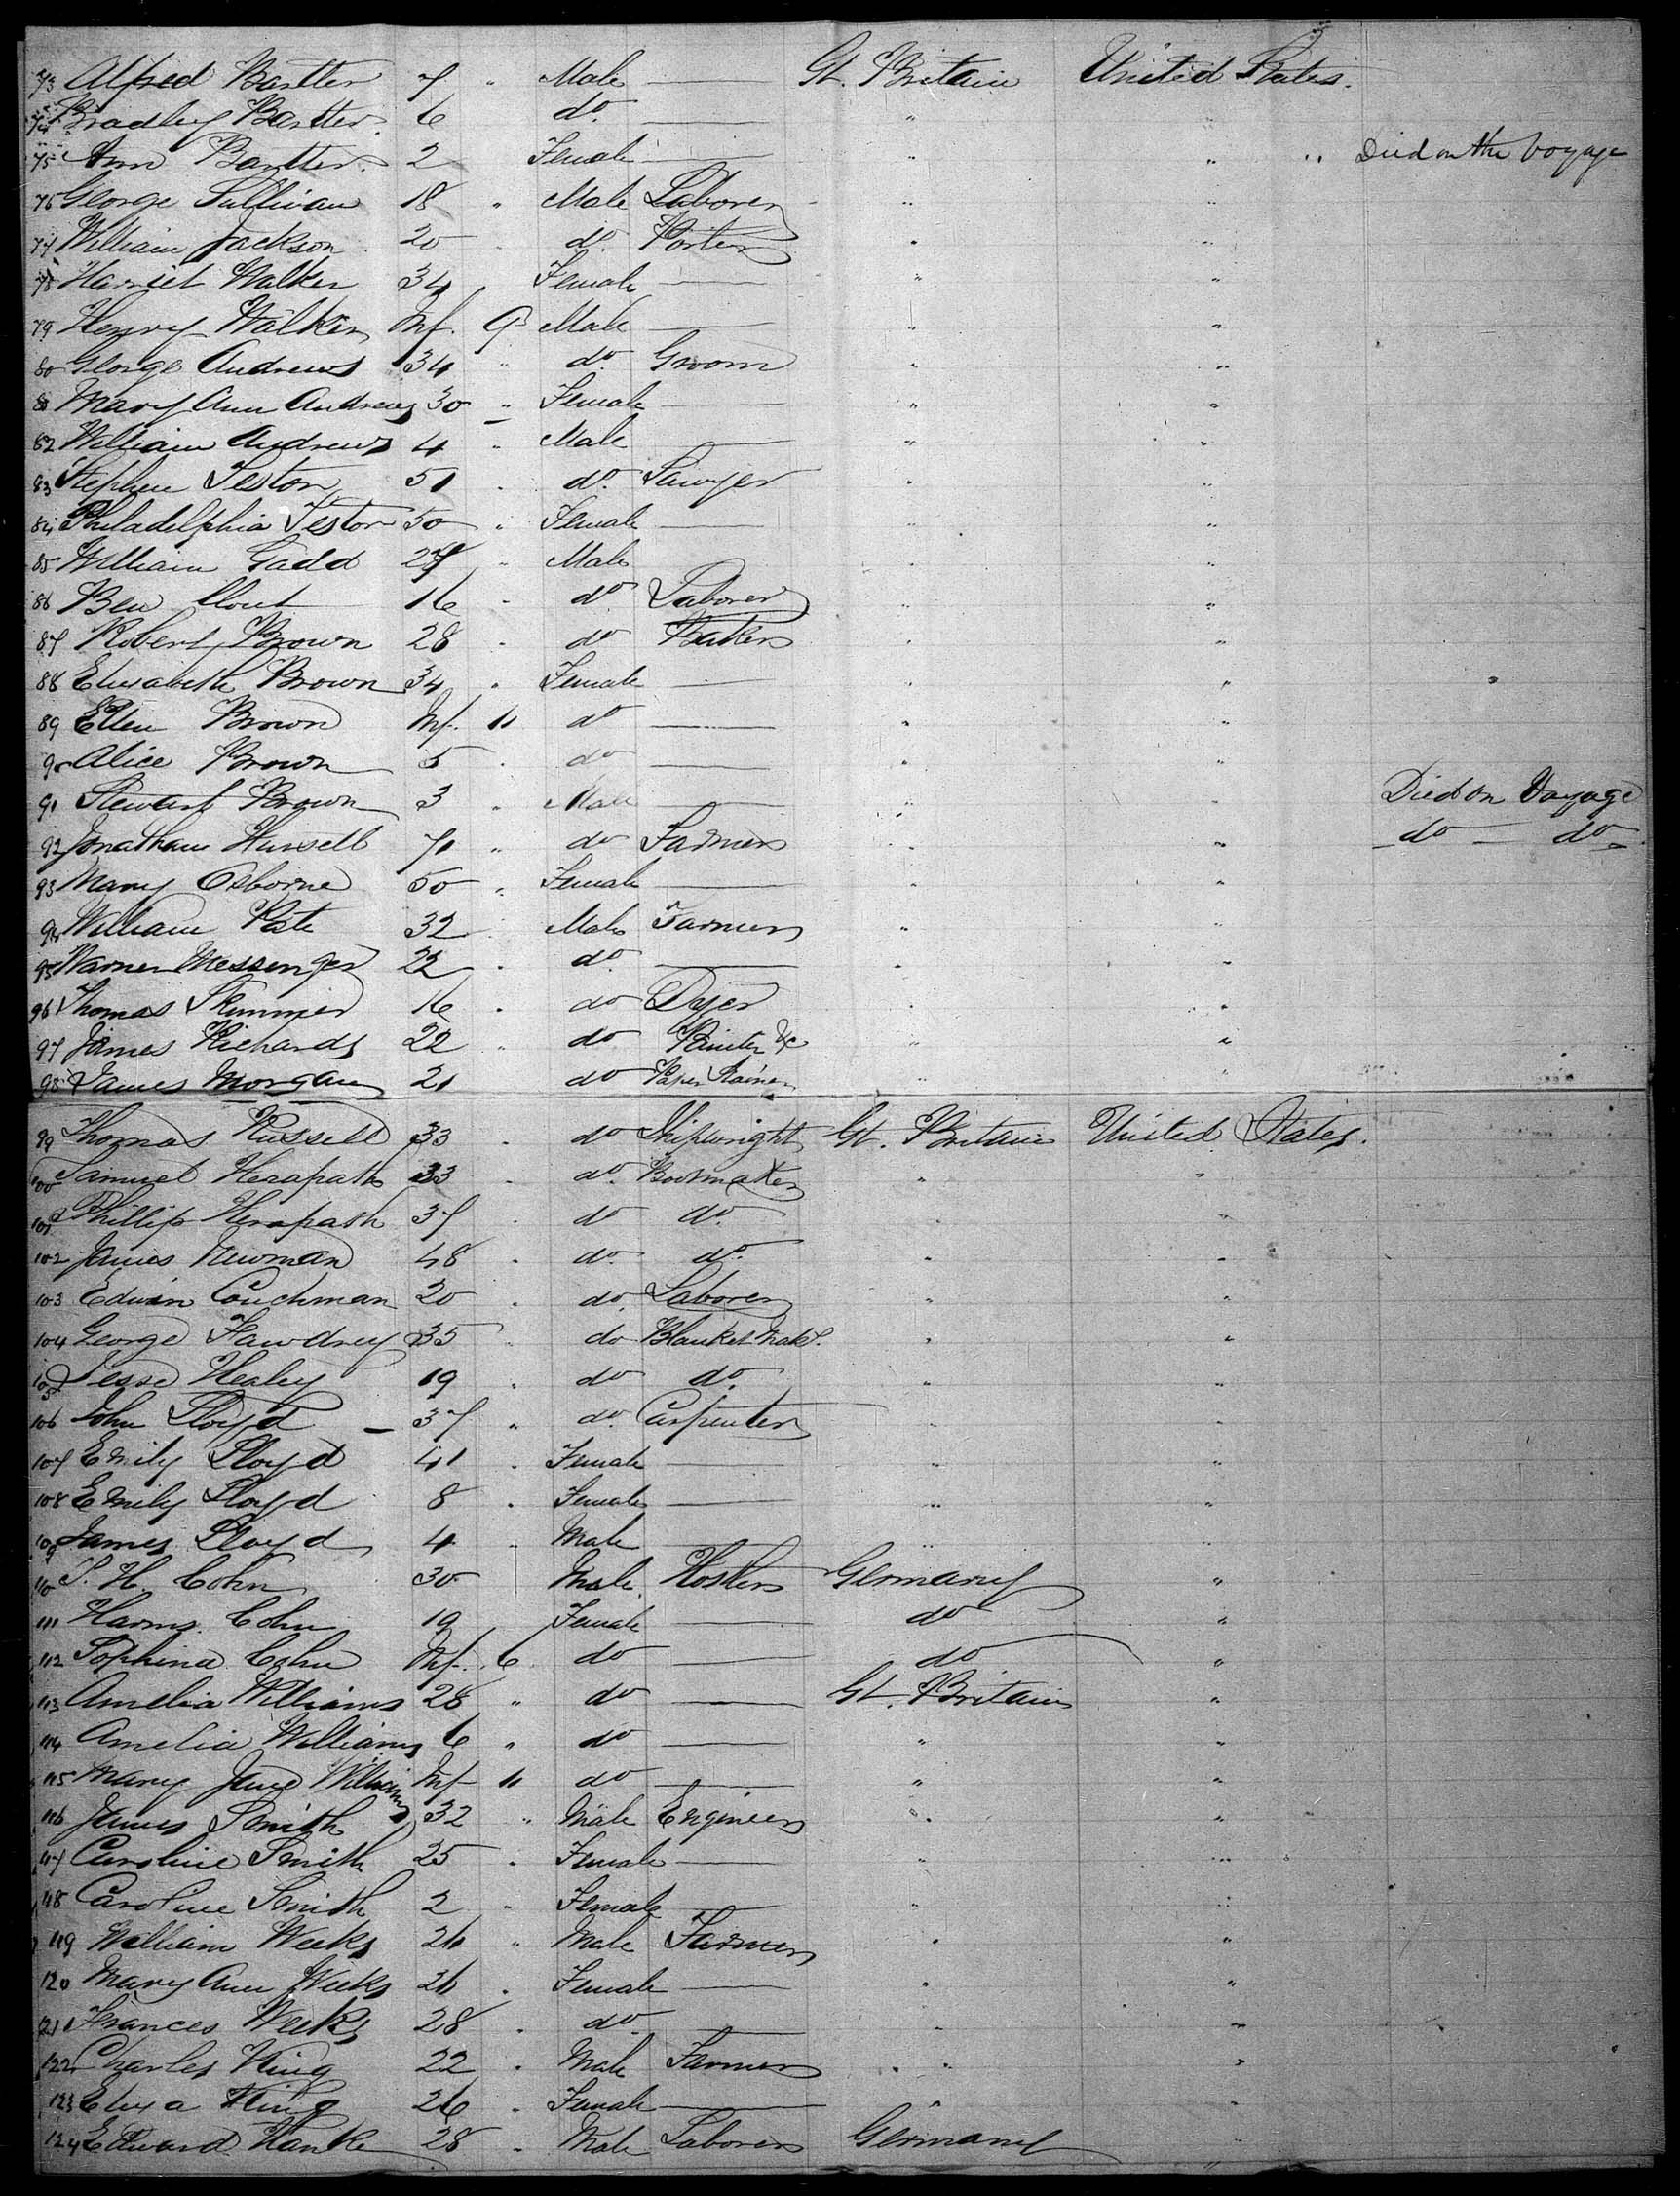 73 Alfred Bartter 7 " Male — Gt. Britain United States.
74 Bradley Bartter 6 do. — " "
75 Ann Bartter. 2 Female — " " " Died on the Voyage
76 George Sullivan 18 " Male Laborer " "
77 William Jackson 20 " do. Porter " "
78 Harriet Walker 34 " Female — " "
79 Henry Walker Inf. 9 Male — " "
80 George Andrews 34 " do. Groom " "
81 Mary Ann Andrews 30 " Female — " "
82 William Andrews 4 " Male — " "
83 Stephen Teston 51 " do. Sawyer " "
84 Philadelphia Teston 50 " Female — " "
85 William Gadd 27 " Male " "
86 Ben 16 " do Laborer " "
87 Robert Brown 28 " do Baker " "
88 Elizabeth Brown 34 " Female — " "
89 Ellen Brown Inf. 11 do — " "
90 Alice Brown 5 " do — " "
91 Stewart Brown 3 " Male — " " Died on Voyage
92 Jonathan Hussell 71 " do Farmer " " do — do
93 Mary Osborne 50 " Female — " "
94 William Pate 32 " Male Farmer " "
95 Warner Messenger 22 " do. — " "
96 Thomas Skimmer 16 " do Dyer " "
97 James Richards 22 " do Painter &c " "
98 James Morgan 21 do Paper Stainer " "
99 Thomas Russell 33 " do Shipwright Gt. Britain United States.
100 Samuel Herapath 33 " do. Bootmaker " "
101 Phillip Herapath 37 " do do.
102 James Newman 48 " do. do. " "
103 Edwin Couchman 20 " do. Laborer " "
104 George Hawdrey 35 " do Blanket Makr. " "
105 Jesse Healey 19 " do do. " "
106 John Lloyd — 37 " do. Carpenter " "
107 Emily Lloyd 41 " Female — " "
108 Emily Lloyd 8 " Female — " "
109 James Lloyd 4 " Male — " "
110 S. H. Cohn 30 Male Hostler Germany "
111 Cohn 19 Female — do "
112 Sophina Cohn Inf. 6 do — do "
113 Amelia Williams 28 " do — Gt. Britain "
114 Amelia Williams 6 " do — " "
115 Mary Jane Williams Inf 11 do — " "
116 James Smith 32 " Male Engineer " "
117 Caroline Smith 25 " Female — " "
118 Caroline Smith 2 " Female — " "
119 William Weeks 26 " Male Farmer " "
120 Mary Ann Weeks 26 " Female — " "
121 Frances Weeks 28 " do. — " "
122 Charles King 22 " Male Farmer " "
123 Eliza King 26 " Female — " "
124 Edward Hanke 28 " Male Laborer Germany "